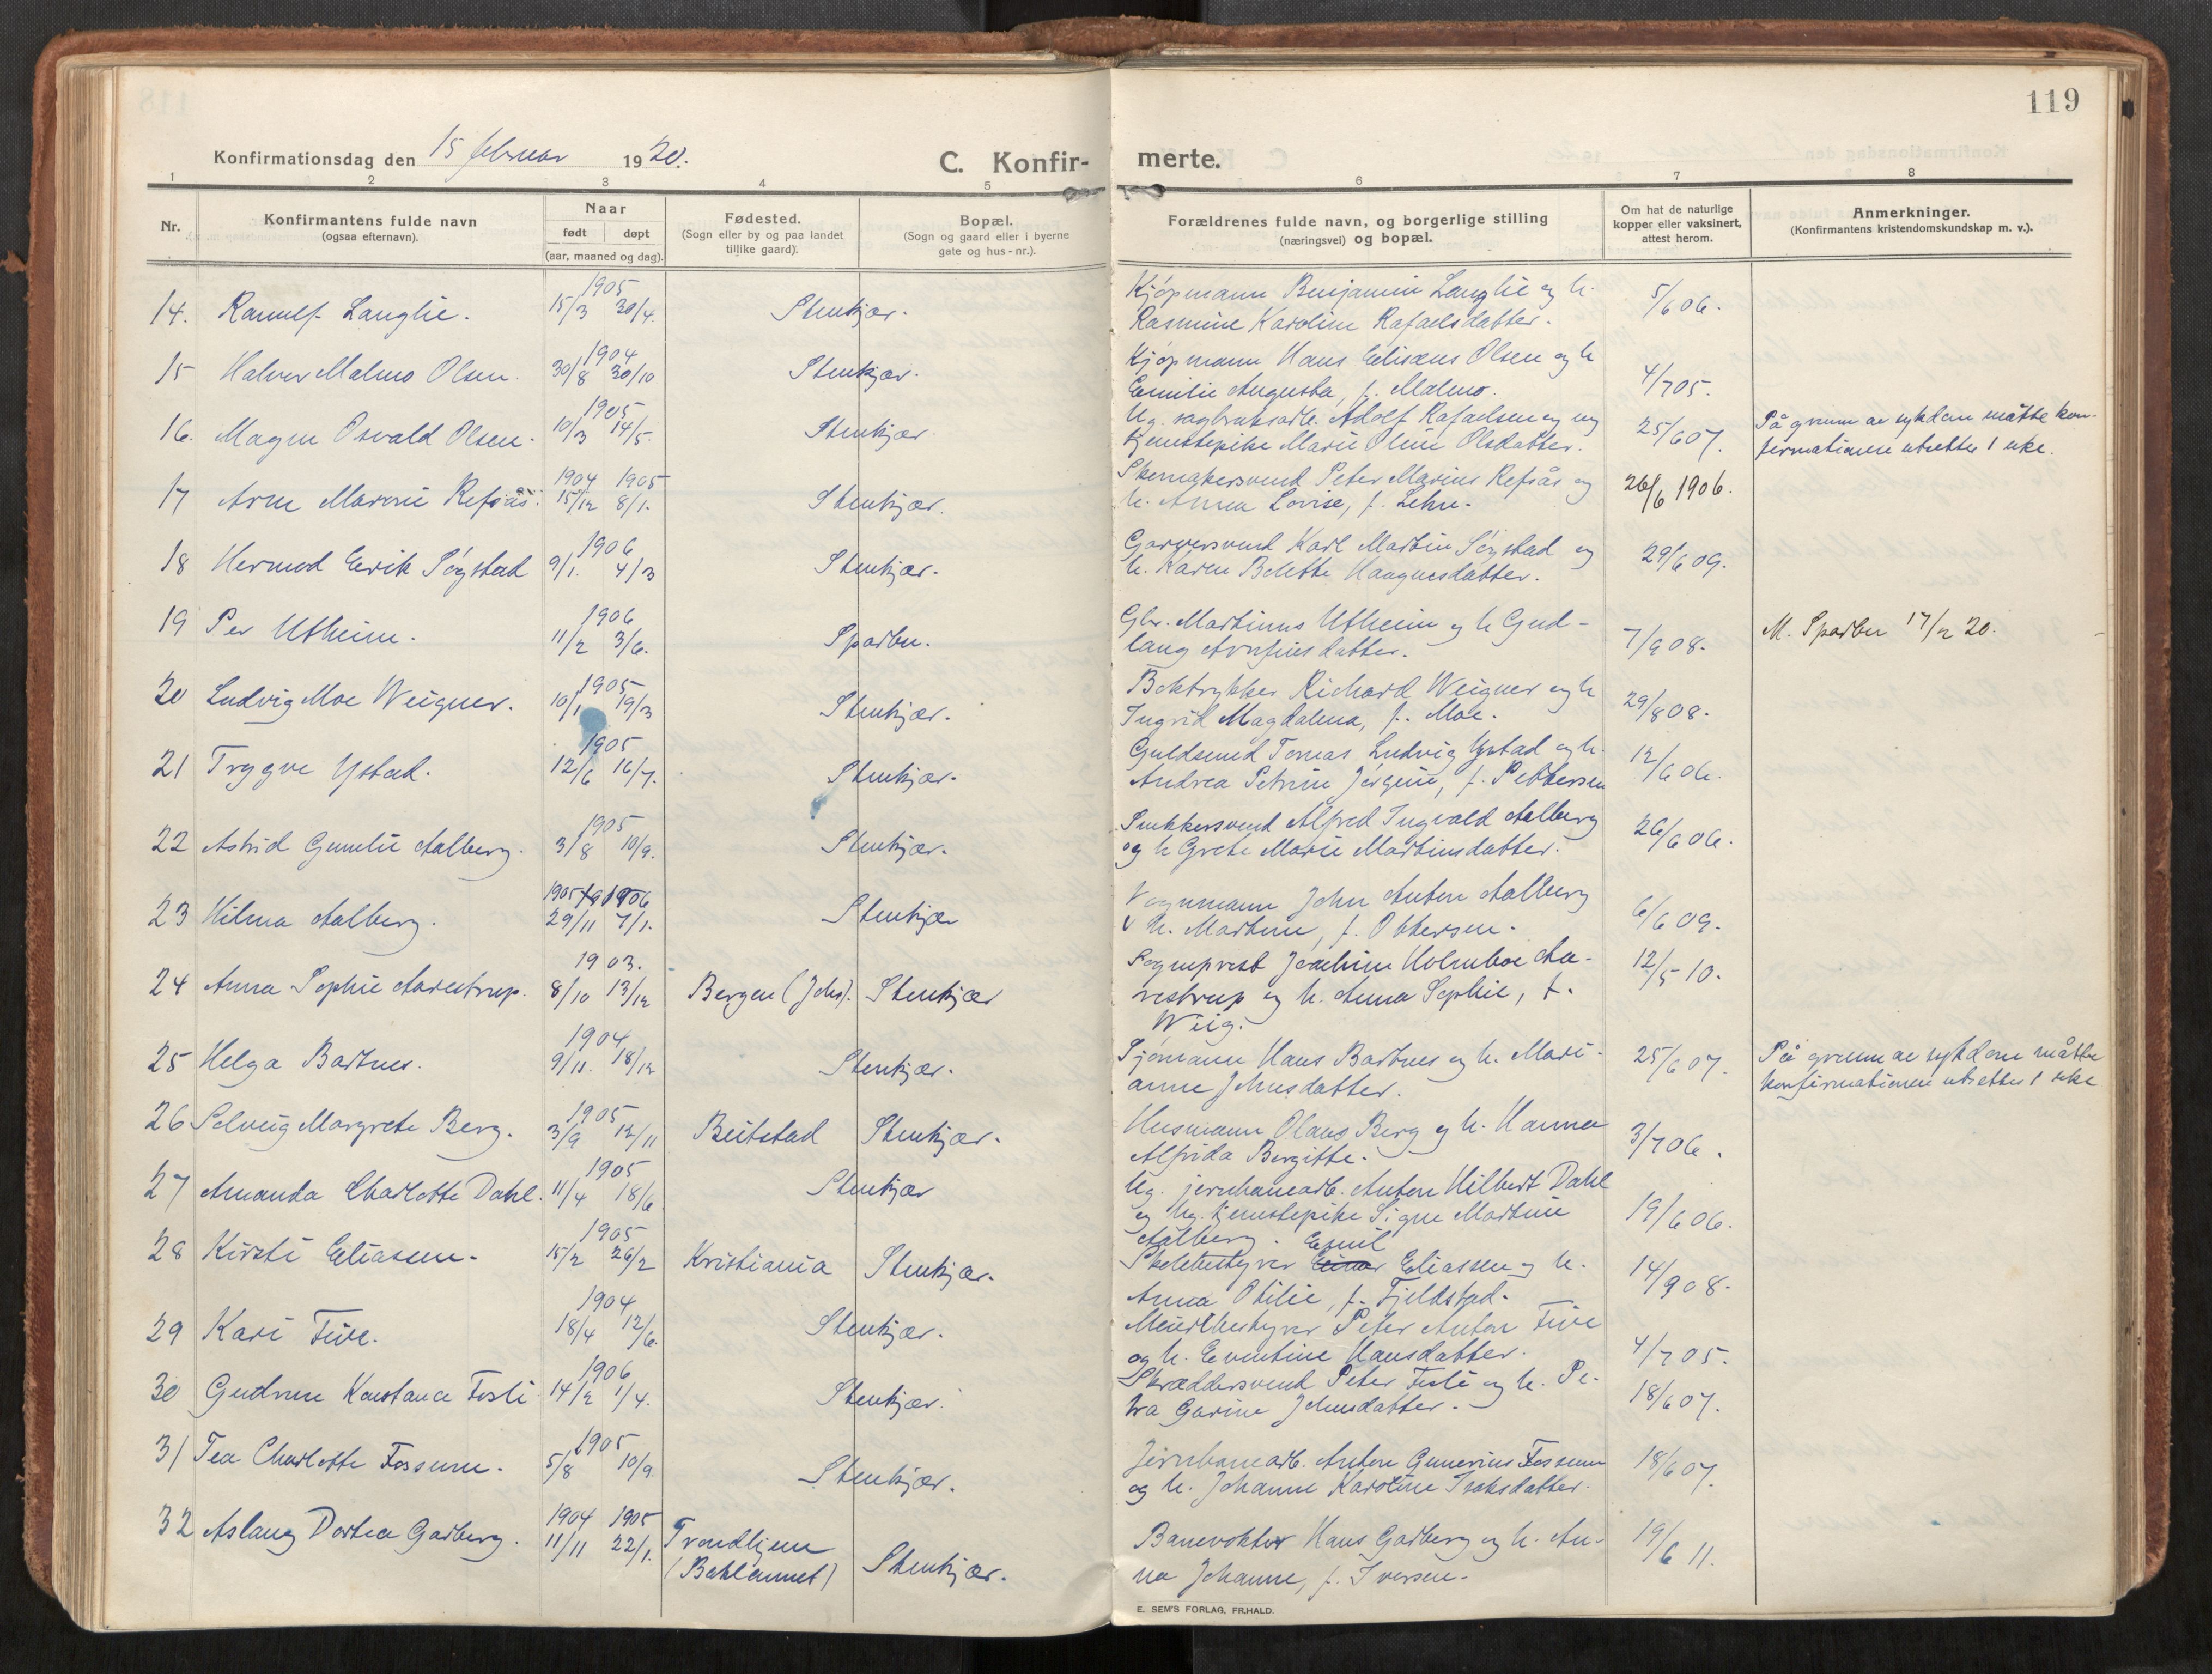 119
Konfirmationsdag den 15 februar 1920.
C. Konfir-
merte.
1 2 3 4 5 6 7 8
Nr.
Konfirmantens fulde navn
(ogsaa efternavn).
Naar
født døpt
(aar, maaned og dag).
Fødested.
(Sogn eller by og paa landet
tillike gaard).
Bopæl.
(Sogn og gaard eller i byerne
gate og hus-nr.).
Forældrenes fulde navn, og borgerlige stilling
(næringsvei) og bopæl.
Om hat de naturlige
kopper eller vaksinert,
attest herom.
Anmerkninger.
(Konfirmantens kristendomskundskap m. v.).
1905
14. Ranulf Langlie. 15/3 30/4. Stenkjær.
Kjøpmann Benjamin Langlie og h.
Rasmine Karoline Rafaelsdatter.
5/6 06.
1904
15 Halvor Malmo Olsen. 30/8 30/10 Stenkjær.
Kjøpmann Hans Eliseus Olsen og h
Emilie Augusta, f. Malmo.
4/7 05.
1905
16. Magne Osvald Olsen. 10/3 14/5. Stenkjær.
Ug. sagbruksarb. Adolf Rafaelsen og ug
tjenestepike Marie Oline Olsdatter.
25/6 07.
På grunn av sykdom måtte kon-
firmationen utsettes 1 uke.
1904 1905
17 Arne Refsås. 15/12 8/1. Stenkjær.
Skomakersvend Peter Marius Refsås og
h. Anna Lovise, f. Lehn.
26/6 1906.
1906
18 Hermod Eerik Søgstad 9/1. 4/3 Stenkjær.
Garversvend Karl Martin Søgstad og
h. Karen Belette Haagnesdatter.
29/6 09.
1906
19 Per Utheim. 11/2 3/6. Sparbu.
Gbr. Martinus Utheim og h Gud-
laug Arnfinsdatter.
7/9 08.
M. Sparbu 17/2 20.
1905
20 Ludvig Moe Weigner. 10/1 19/3 Stenkjær.
Boktrykker Richard Weigner og h
Ingrid Magdalena, f. Moe.
29/8 08.
1905
21 Trygve Ystad. 12/6 16/7. Stenkjær.
Guldsmed Tomas Ludvig Ystad og h.
Andrea Petrine Jørgine, f. Pettersen
12/6 06.
1905
22 Astrid Gunelie Aalberg. 3/8 10/9. Stenkjær.
Snekkersvend Alfred Ingvald Aalberg
og h Grete Marie Martinsdatter.
26/6 06.
1905 1906
23 Hilma Aalberg. 29/11 7/1. Stenkjær
Vognmann John Anton Aalberg
h. Martine, f. Ottersen.
6/6 09.
1903.
24 Anna Sophie Aarestrup. 8/10 13/12 Bergen (Johs). Stenkjær
Sogneprest Joachim Holmboe Aa-
restrup og h. Anna Sophie, f.
Wiig.
12/5 10.
1904
25 Helga Bartnes. 9/11. 18/12 Stenkjær.
Sjømann Hans Bartnes og h. Mari-
anne Johnsdatter.
25/6 07.
På grunn av sykdom måtte
konfirmationen utsettes 1 uke
1905
26 Solveig Margrete Berg. 3/9 12/11 Beitstad Stenkjær.
Husmann Olaus Berg og h. Hanna
Alfrida Bergitte.
3/7 06.
1905
27 Amanda Charlotte Dahl. 11/4 18/6 Stenkjær
Ug. jernbanearb. Anton Hilbert Dahl
og ug. tjenestepike Signe Martine
Aalberg.
19/6 06.
1905
28 Kirsti Eliassen. 15/2 26/2 Kristiania Stenkjær.
Emil
Skolebestyrer Einar Eliassen og h.
Anna Otilie, f. Fjeldstad.
14/9 08.
1904
29 Kari Five. 18/4 12/6. Stenkjær.
Meieribestyrer Peter Anton Five
og h. Eventine Hansdatter.
4/7 05.
1906
30 Gudrun Konstance Fosli. 14/2 1/4. Stenkjær.
Skræddersvend Peter Fosli og h. Pe-
tra Gurine Johnsdatter.
18/6 07.
1905
31 Tea Charlotte Fossum. 5/8 10/9. Stenkjær.
Jernbanearb. Anton Gunerius Fossum
og h. Johanne Karoline Isaksdatter.
18/6 07.
1904 1905
32 Aslaug Dortea Garberg. 11/11 22/1. Trondhjem
(Baklannet) Stenkjær.
Banevokter Hans Garberg og h. An-
na Johanne, f. Iversen.
19/6 11.
E. SEM'S FORLAG, FR.HALD.